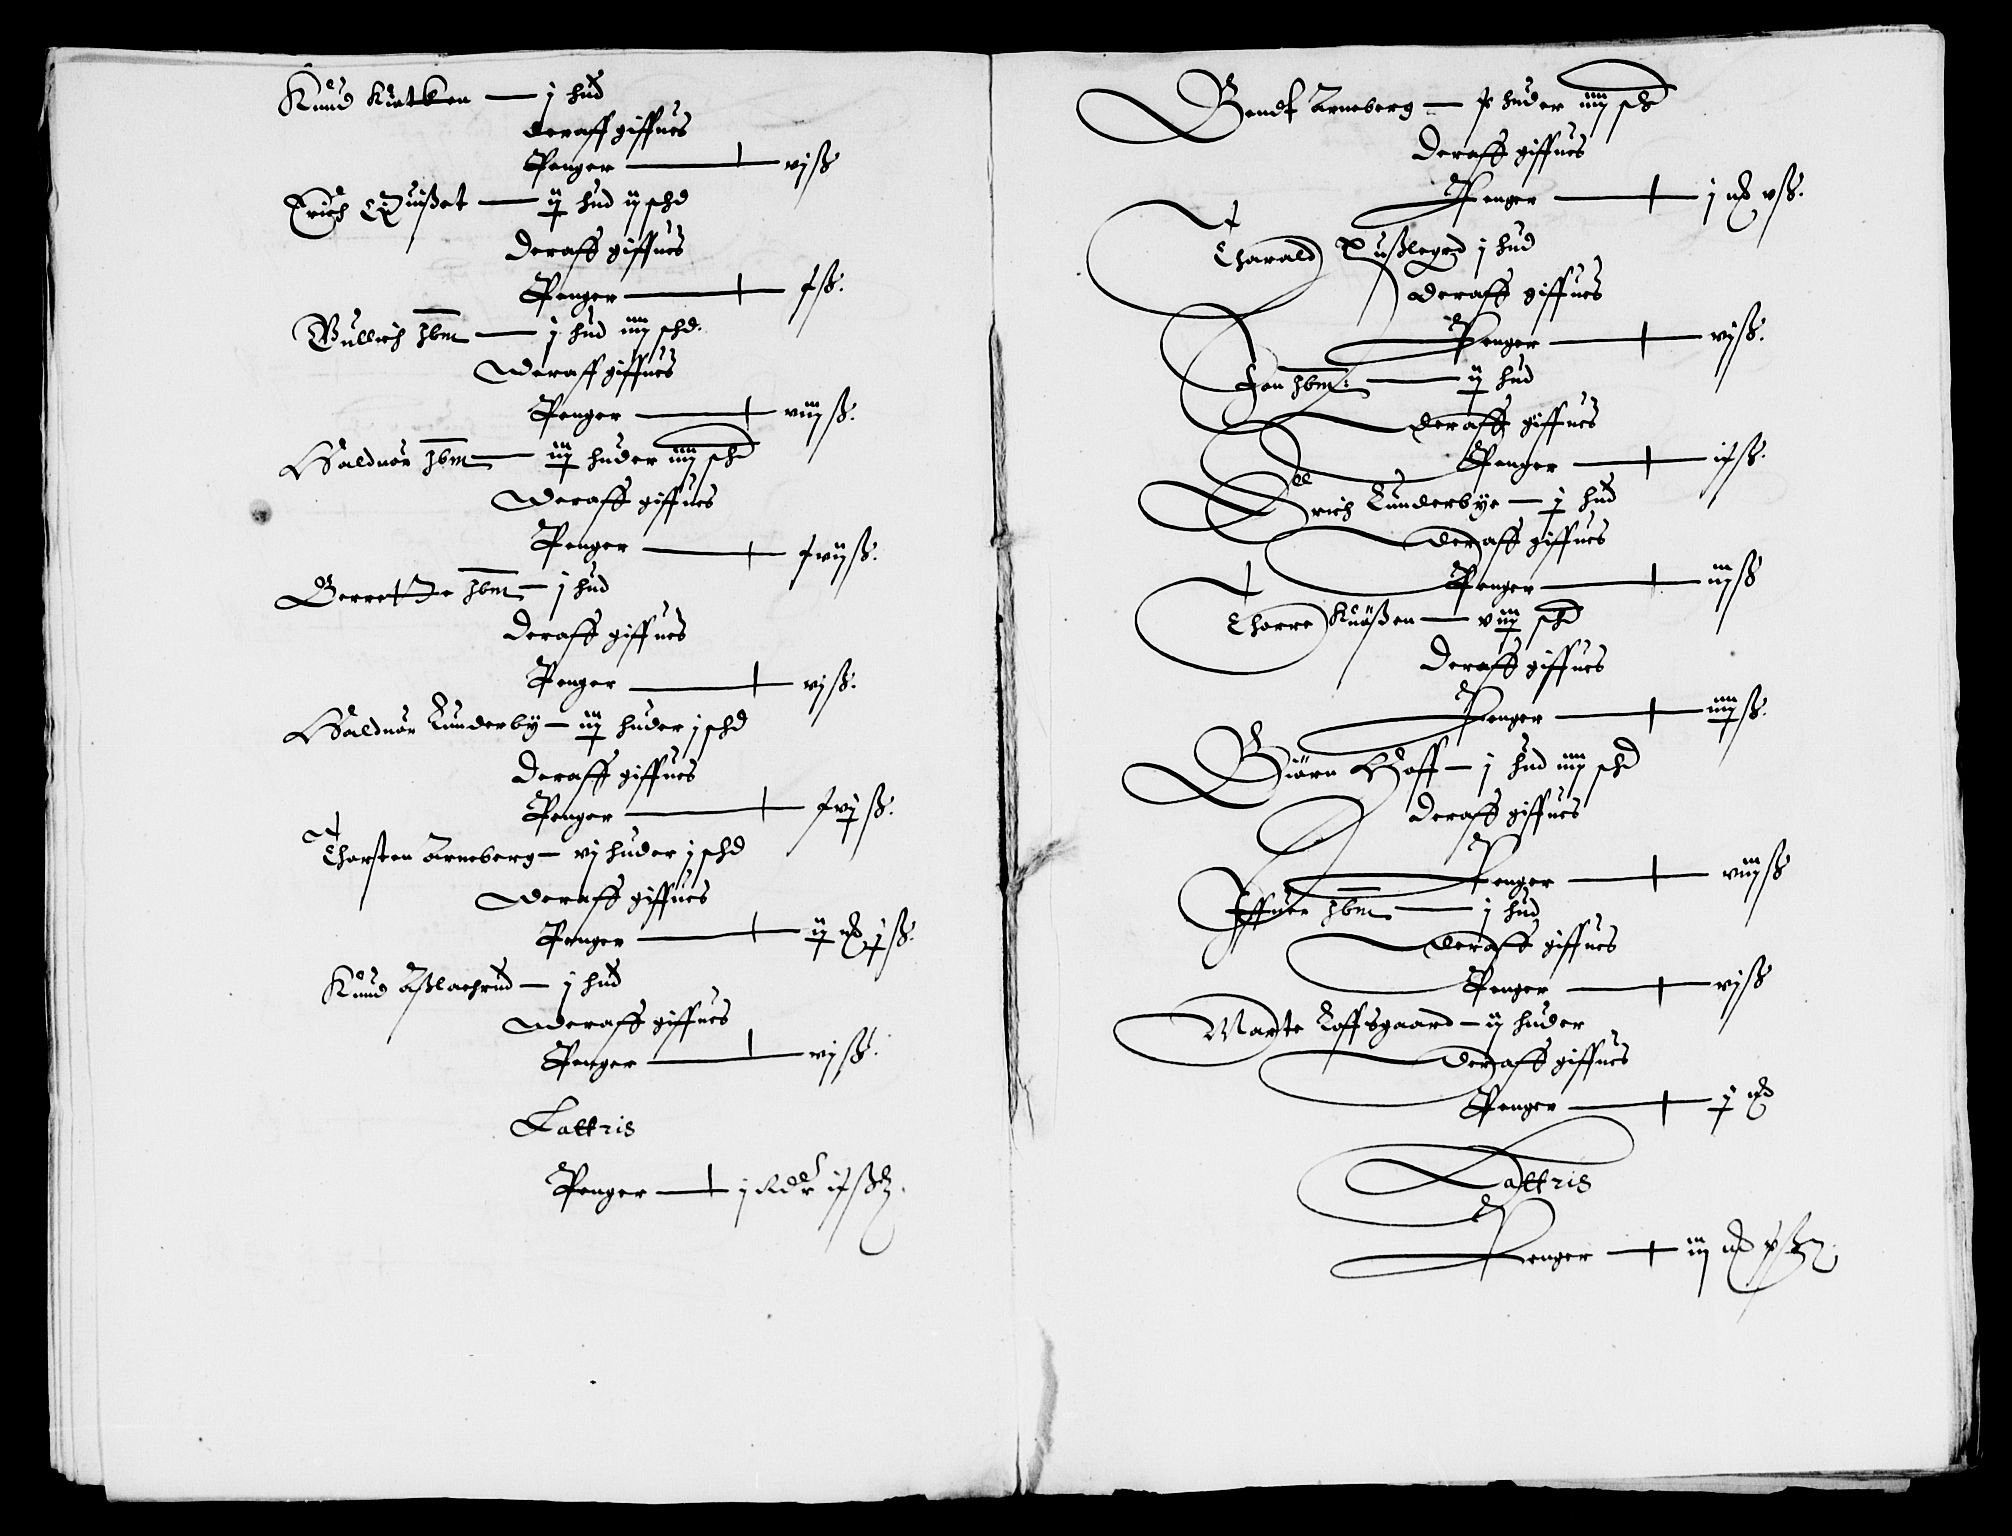 Knud Kiatken — j hud
deraff giffues
Penger — vj ß
Erich Quißet — ij hud ij schd
deraff giffues
Penger — x ß.
Gullich ibm — j hud iiij schd.
deraff giffues
Penger — viij ß.
Halduor ibm — iij huder iiij schd
deraff giffues
Penger — xvij ß.
Berrette ibm — j hud
deraff giffues
Penger — vj ß.
Halduor Lunderby — iij huder j schd
deraff giffues
Penger — xvj ß.
Thorsten Arneberg — vj huder j schd
deraff giffues
Penger — ß.
Knud Aßlachrud — j hud
deraff giffues
Penger — vj ß.
Lattris
Penger — j Rdr
Bendt Arneberg — huder iiij schd
deraff giffues
Penger — j v ß.
Tharald j hud
deraff giffues
Penger — vj ß.
Jon ibm: — ij hud
deraff giffues
Penger — ix ß.
Erich Lunderbye — j hud
deraff giffues
Penger — iij ß
Thorre Knaßen — viij schd
deraff giffues
Penger — iiij ß.
Biörn Hoff — j hud iiij schd
deraff giffues
Penger — viij ß
Iffuer ibm — j hud
deraff giffues
Penger — vj ß
Marte Loffsgaard — ij huder
deraff giffues
Penger — j
Lattris
Penger — iij